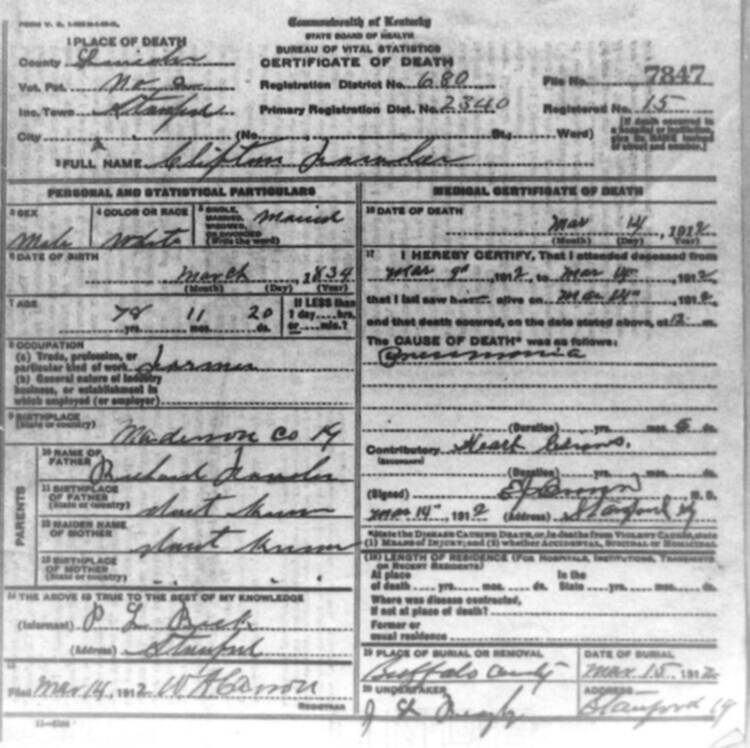 Commonwealth of Kentucky
STATE BOARD OF HEALTH
BUREAU OF VITAL STATISTICS
CERTIFICATE OF DEATH
1 PLACE OF DEATH
County Lincoln
Vot. Pct. No 2
Inc. Town Stanford
City (No. St.; Ward)
Registration District No. 680
Primary Registration Dist. No. 2340
File No. 7847
Registered No. 15
[If death occurred in a hospital or institution, give its NAME instead of street and number.]
2 FULL NAME Clifton
PERSONAL AND STATISTICAL PARTICULARS
3 SEX
Male
4 COLOR OR RACE
White
5 SINGLE, MARRIED, WIDOWED, OR DIVORCED (Write the word)
Married
6 DATE OF BIRTH
March 1834
(Month) (Day) (Year)
7 AGE
78 yrs. 11 mos. 20 ds.
If LESS than 1 day....hrs. or....min.?
8 OCCUPATION
(a) Trade, profession, or
particular kind of work Farmer
(b) General nature of industry
business, or establishment in
which employed (or employer)
9 BIRTHPLACE
(State or country) Madison Co Ky
PARENTS
10 NAME OF FATHER Richard
11 BIRTHPLACE OF FATHER (State or country) dont know
12 MAIDEN NAME OF MOTHER dont know
13 BIRTHPLACE OF MOTHER (State or country)
14 THE ABOVE IS TRUE TO THE BEST OF MY KNOWLEDGE
(Informant) P L
(Address) Stanford
15
Filed Mar 14, 1912
REGISTRAR
MEDICAL CERTIFICATE OF DEATH
16 DATE OF DEATH
Mar 14, 1912
(Month) (Day) (Year)
17 I HEREBY CERTIFY, That I attended deceased from
Mar 9th 1912, to Mar 14th, 1912,
that I last saw alive on Mar 14th, 1912,
and that death occured, on the date stated above, at 12 m.
The CAUSE OF DEATH* was as follows:
Pneumonia
(Duration) yrs. mos. 5 ds.
Contributory Heart
(SECONDARY)
(Duration) yrs. mos. ds.
(Signed) M. D.
Mar 14th, 1912 (Address) Stanford Ky
*State the DISEASE CAUSING DEATH, or, in deaths from VIOLENT CAUSES, state
(1) MEANS OF INJURY; and (2) whether ACCIDENTAL, SUICIDAL or HOMICIDAL.
(18) LENGTH OF RESIDENCE (FOR HOSPITALS, INSTITUTIONS, TRANSIENTS, OR RECENT RESIDENTS)
At place of death yrs. mos. ds. In the State yrs. mos. ds.
Where was disease contracted,
If not at place of death?
Former or
usual residence
19 PLACE OF BURIAL OR REMOVAL
Buffalo
DATE OF BURIAL
Mar 15, 1912
20 UNDERTAKER
ADDRESS
Stanford Ky